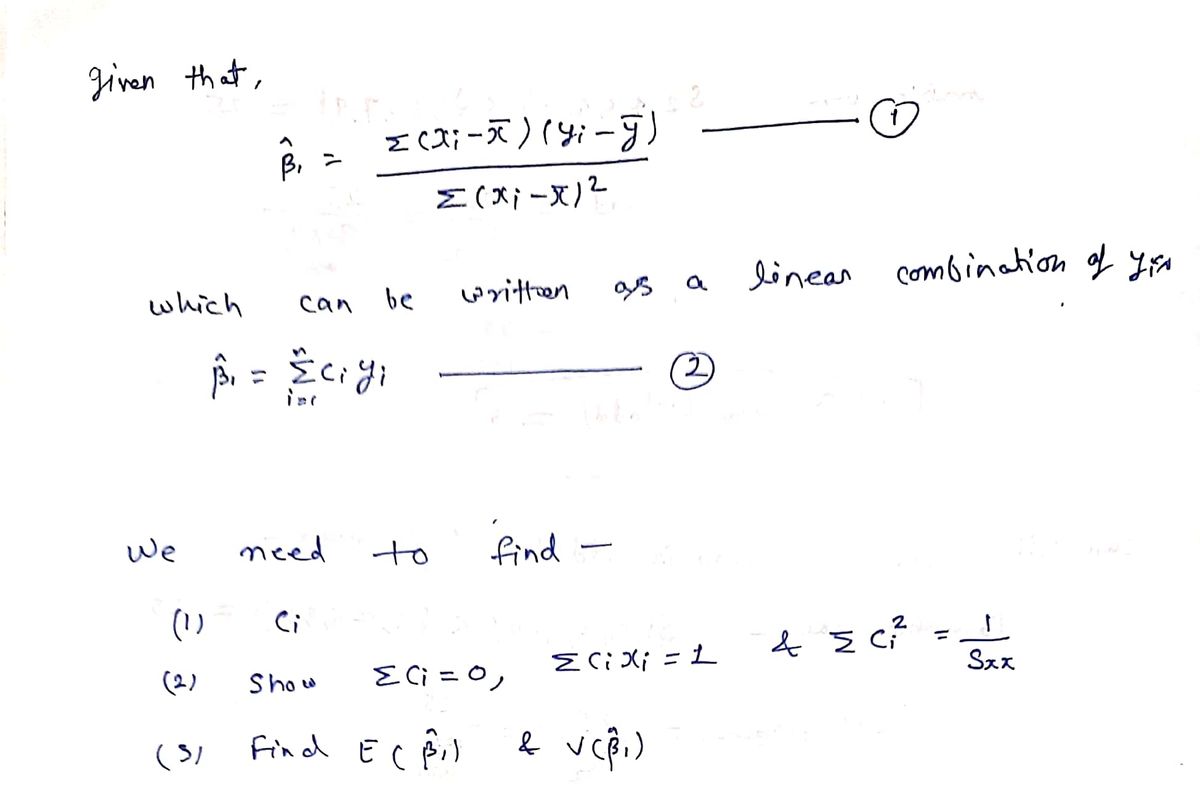 given that,
β̂₁ = Σ(xi - x̄)(yi - ȳ) / Σ(xi - x̄)² ——— ①
which can be written as a linear combination of yi's
β̂₁ = Σⁿᵢ₌₁ ci yi ——— ②
We need to find –
(1) Ci
(2) Show ΣCi = 0, ΣCixi = 1 & ΣCi² = 1/Sxx
(3) Find E(β̂₁) & V(β̂₁)